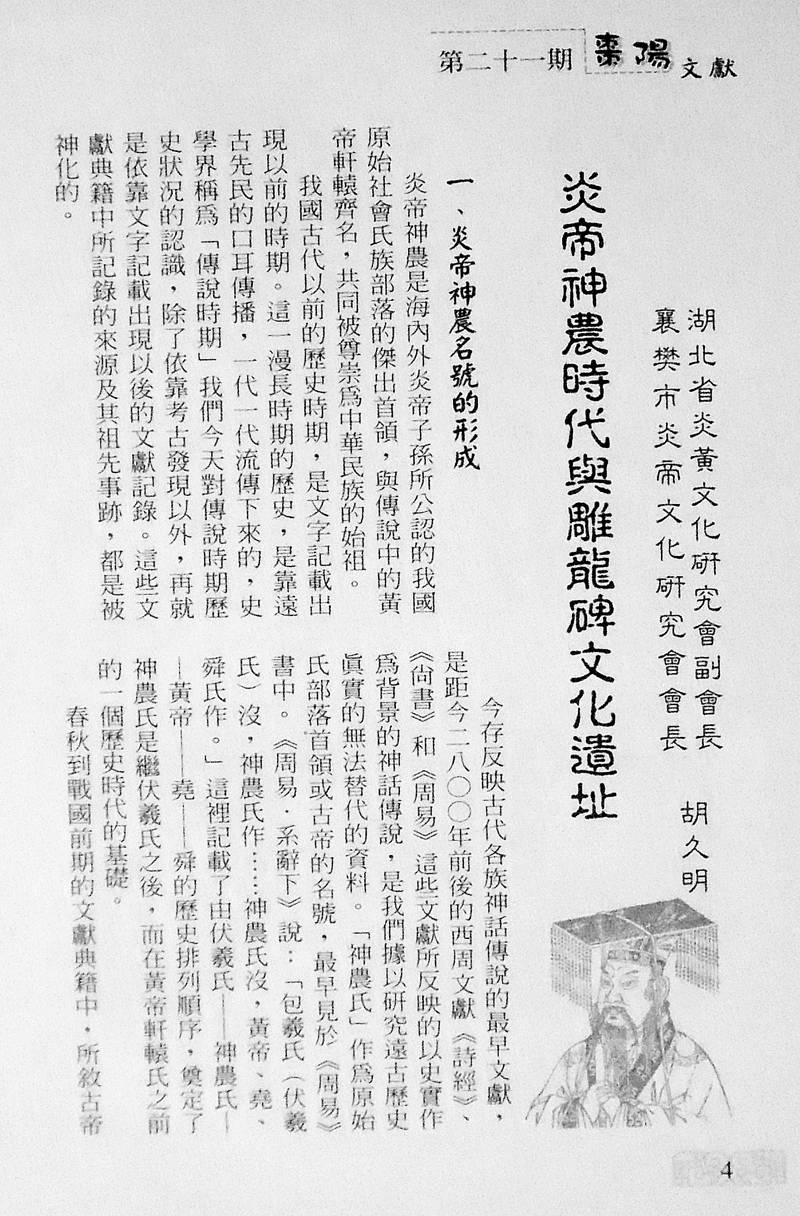 第二十一期 棗陽文獻
湖北省炎黃文化研究會副會長
襄樊市炎帝文化研究會會長
胡久明
炎帝神農時代與雕龍碑文化遺址
一、炎帝神農名號的形成
炎帝神農是海內外炎帝子孫所公認的我國
原始社會氏族部落的傑出首領，與傳說中的黃
帝軒轅齊名，共同被尊崇爲中華民族的始祖。
我國古代以前的歷史時期，是文字記載出
現以前的時期。這一漫長時期的歷史，是靠遠
古先民的口耳傳播，一代一代流傳下來的，史
學界稱爲「傳說時期」我們今天對傳說時期歷
史狀況的認識，除了依靠考古發現以外，再就
是依靠文字記載出現以後的文獻記錄。這些文
獻典籍中所記錄的來源及其祖先事跡，都是被
神化的。
今存反映古代各族神話傳說的最早文獻，
是距今二八〇〇年前後的西周文獻《詩經》、
《尙書》和《周易》這些文獻所反映的以史實作
爲背景的神話傳說，是我們據以研究遠古歷史
眞實的無法替代的資料。「神農氏」作爲原始
氏部落首領或古帝的名號，最早見於《周易》
書中。《周易．系辭下》說：「包羲氏（伏羲
氏）沒，神農氏作……神農氏沒，黃帝、堯、
舜氏作。」這裡記載了由伏羲氏——神農氏—
—黃帝——堯——舜的歷史排列順序，奠定了
神農氏是繼伏羲氏之後，而在黃帝軒轅氏之前
的一個歷史時代的基礎。
春秋到戰國前期的文獻典籍中，所敘古帝
4